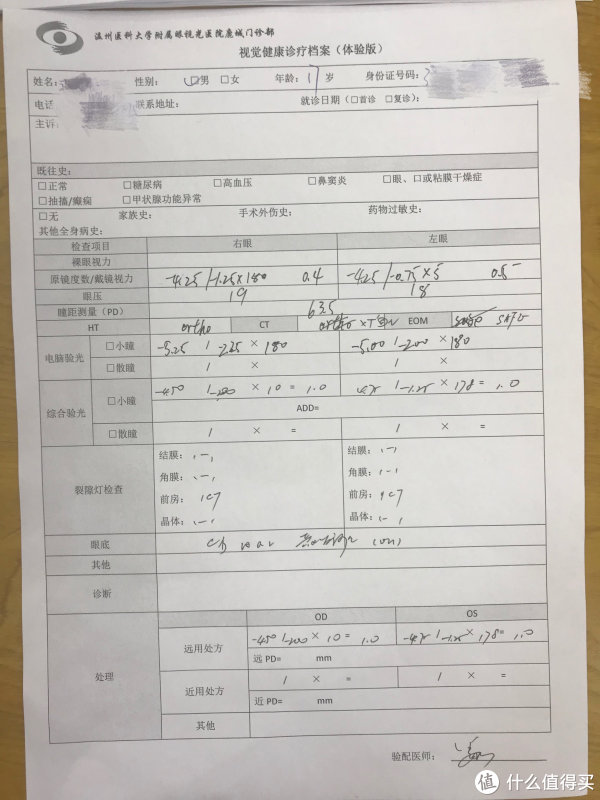 温州医科大学附属眼视光医院鹿城门诊部
视觉健康诊疗档案(体验版)
姓名: 性别: □男 □女 年龄: 17 岁 身份证号码:
电话 联系地址: 就诊日期(□首诊 □复诊):
主诉:
既往史:
□正常 □糖尿病 □高血压 □鼻窦炎 □眼、口或粘膜干燥症
□抽搐/癫痫 □甲状腺功能异常
□无 家族史: 手术外伤史: 药物过敏史:
其他全身病史:
检查项目 右眼 左眼
裸眼视力
原镜度数/戴镜视力 -4.25 /-1.25×180 0.4 -4.25 /-0.75×5 0.5
眼压 19 18
瞳距测量(PD) 63.5
HT ortho CT ortho EOM
电脑验光 □小瞳 -5.25 / -2.25 × 180 -5.00 / -2.00 × 180
□散瞳 / × / ×
综合验光 □小瞳 -4.50 /-2.00 × 10 = 1.0 -4.75 /-1.25 × 178 = 1.0
ADD=
□散瞳 / × = / × =
裂隙灯检查 结膜:(-) 结膜:(-)
角膜:(-) 角膜:(-)
前房: 前房:
晶体:(-) 晶体:(-)
眼底
其他
诊断
处理 OD OS
远用处方 -4.50 /-2.00 × 10 = 1.0 -4.75 /-1.25 × 178 = 1.0
远 PD= mm
近用处方 / × = / × =
近 PD= mm
其他
验配医师:
值 什么值得买